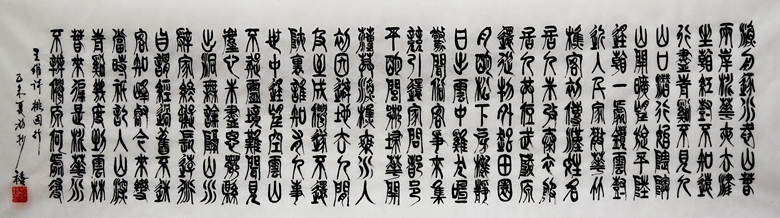 漁舟逐水愛山春
兩岸桃花夾去津
坐看紅樹不知遠
行盡青溪不見人
山口潛行始隈隩
山開曠望旋平陸
遙看一處攢雲樹
近入家散花竹
樵客初傳漢姓名
居人未改秦衣服
居人共住武陵源
還從物外起田園
月明松下房櫳靜
日出雲中雞犬喧
驚聞俗客爭來集
競引還家問都邑
平明閭巷掃花開
薄暮漁樵乘水入
初因避地去人間
及至成仙遂不還
峽裏誰知有人事
世中遙望空雲山
不疑靈境難聞見
塵心未盡思鄉縣
出洞無論隔山水
辭家終擬長游衍
自謂經過舊不迷
安知峰壑今來變
當時只記入山深
青溪幾度到雲林
春來遍是桃花水
不辨仙源何處尋
王維詩桃園行
乙未夏